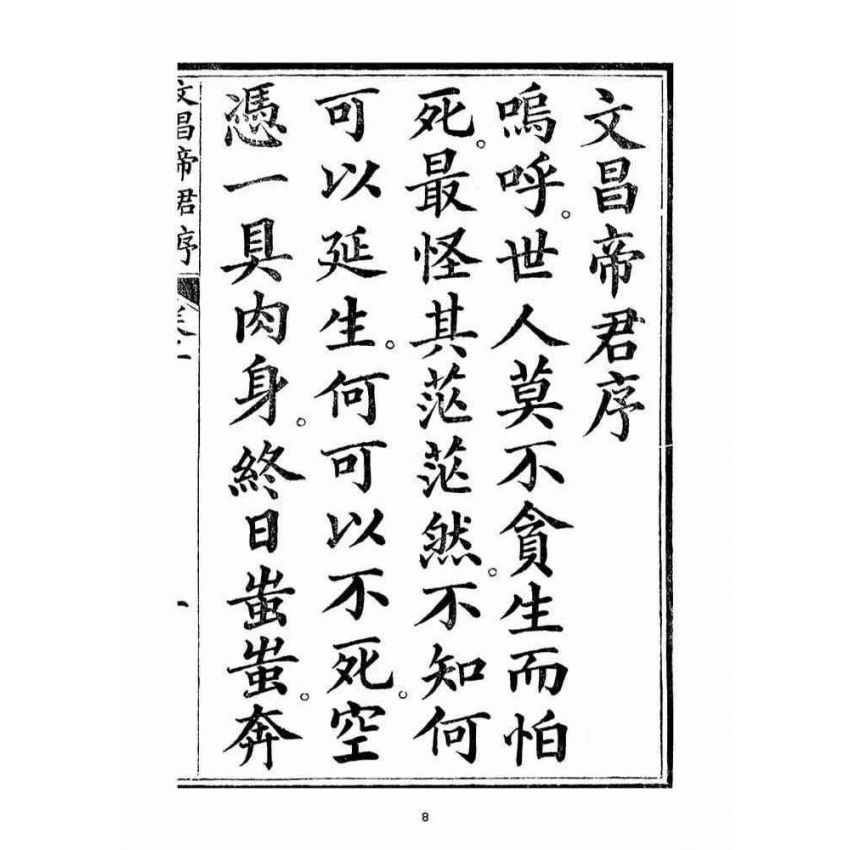 文昌帝君序
嗚呼。世人莫不貪生而怕
死。最怪其茫茫然。不知何
可以延生。何可以不死。空
憑一具肉身。終日蚩蚩。奔
文昌帝君序
8